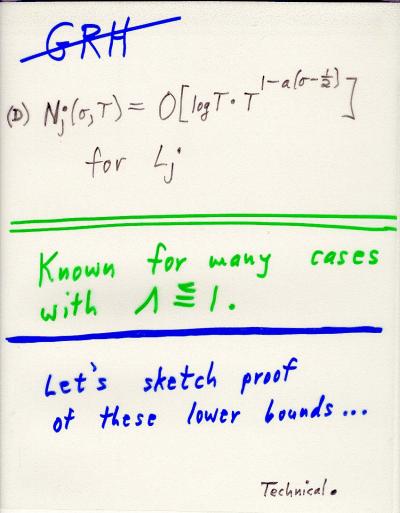 GRH
(D) Nⱼ(σ,T) = O[log T · T^{1-a(σ-½)}]
for Lⱼ
Known for many cases
with Λ ≦ 1.
Let's sketch proof
of these lower bounds...
Technical.